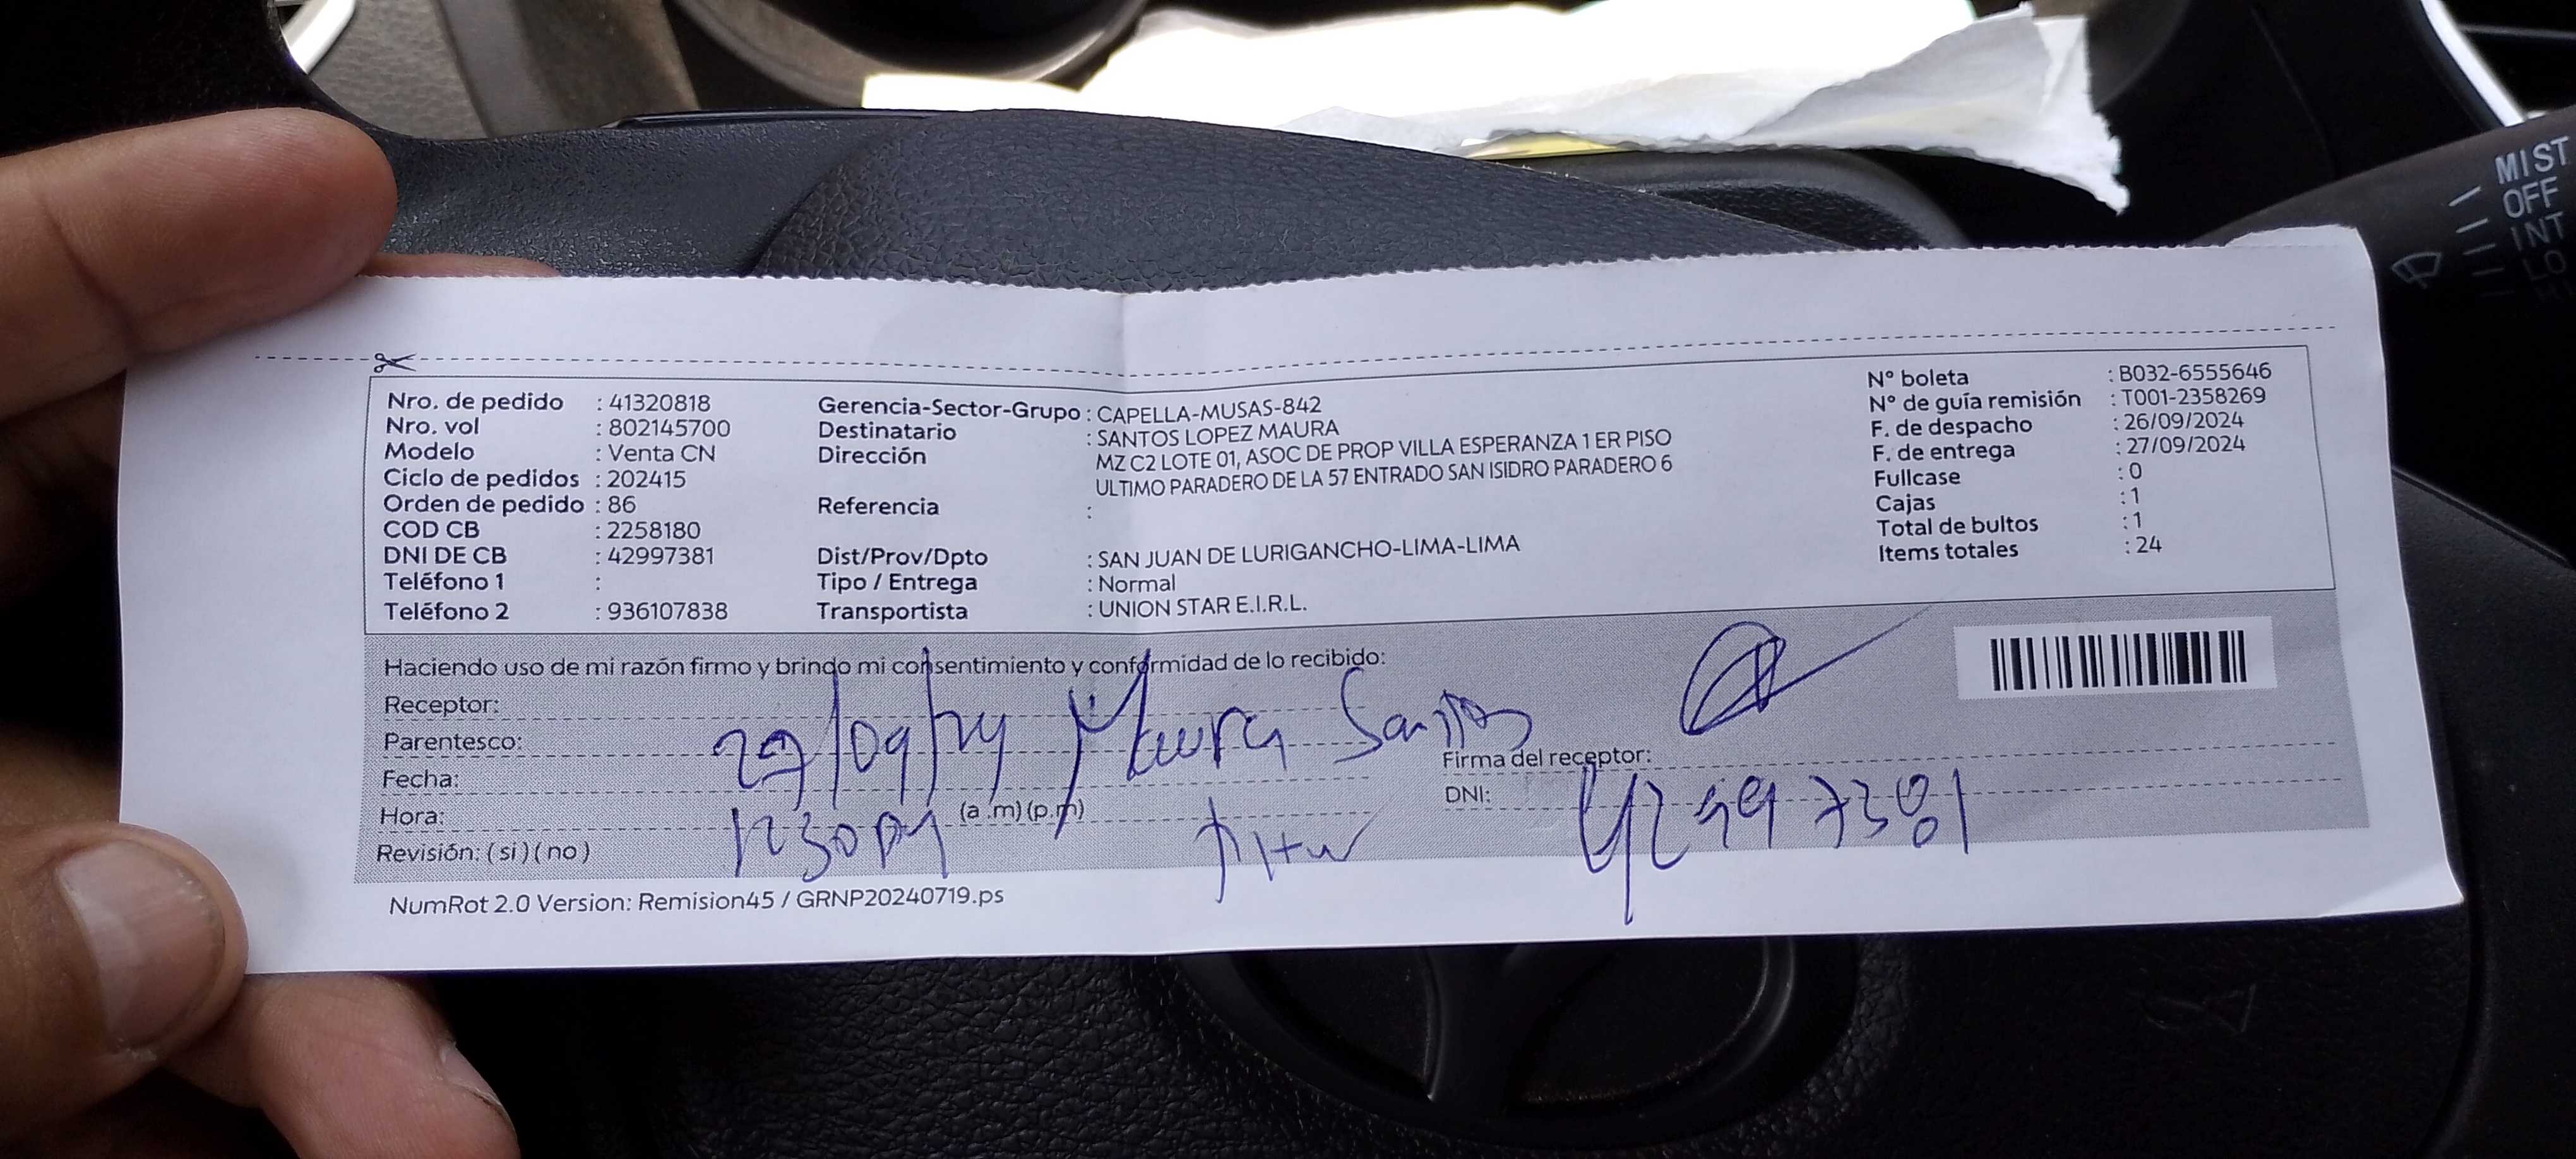 MIST
OFF
INT
LO
Nro. de pedido : 41320818
Nro. vol : 802145700
Modelo : Venta CN
Ciclo de pedidos : 202415
Orden de pedido : 86
COD CB : 2258180
DNI DE CB : 42997381
Teléfono 1 :
Teléfono 2 : 936107838
Gerencia-Sector-Grupo : CAPELLA-MUSAS-842
Destinatario : SANTOS LOPEZ MAURA
Dirección MZ C2 LOTE 01, ASOC DE PROP VILLA ESPERANZA 1 ER PISO
ULTIMO PARADERO DE LA 57 ENTRADO SAN ISIDRO PARADERO 6
Referencia :
Dist/Prov/Dpto : SAN JUAN DE LURIGANCHO-LIMA-LIMA
Tipo / Entrega : Normal
Transportista : UNION STAR E.I.R.L.
N° boleta : B032-6555646
N° de guía remisión : T001-2358269
F. de despacho : 26/09/2024
F. de entrega : 27/09/2024
Fullcase : 0
Cajas : 1
Total de bultos : 1
Items totales : 24
Haciendo uso de mi razón firmo y brindo mi consentimiento y conformidad de lo recibido:
Receptor:
Parentesco:
27/09/24 Maura Santos
Fecha:
Firma del receptor:
Hora: 1230 pm (a .m) (p.m)
DNI: 42997381
Revisión: ( si ) ( no )
NumRot 2.0 Version: Remision45 / GRNP20240719.ps